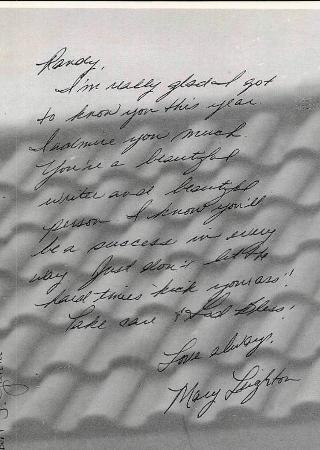 Randy,
I'm really glad I got
to know you this year
I admire you much.
You're a beautiful
writer and beautiful
person I know you'll
be a success in every
way Just don't let the
hard times kick your ass!!
Take care & God Bless!
Love always,
Mary Leighton